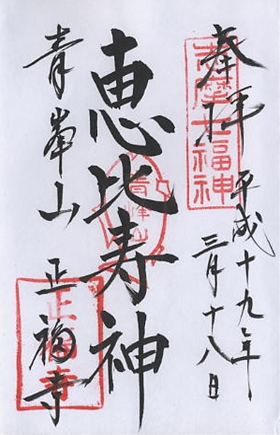 奉拝
平成十九年
三月十八日
志摩七福神
恵比寿神
青峰山
青峯山
正福寺
正福寺